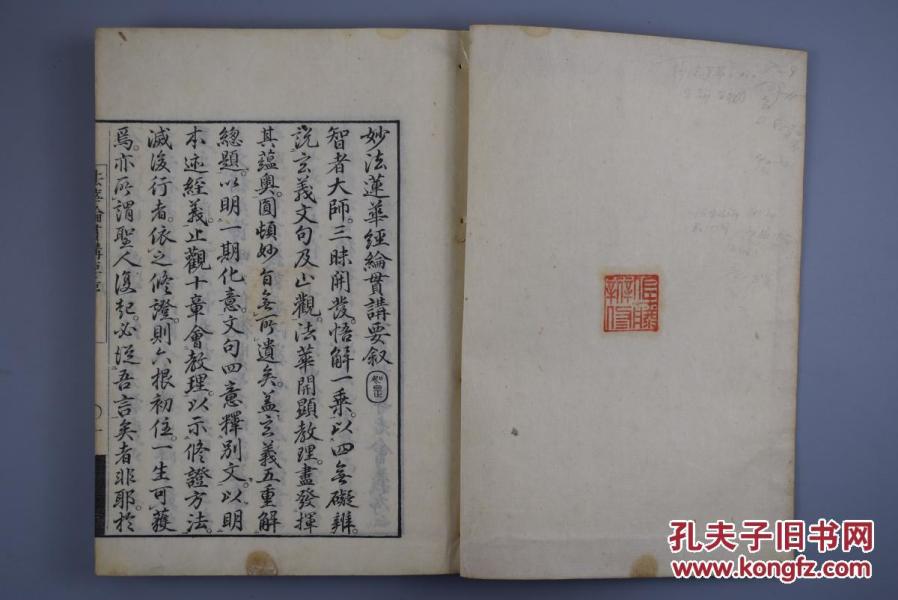 妙法蓮華經綸貫講要叙
智者大師。三昧開發。悟解一乘。以四無礙辨。
說玄義文句及止觀。法華開顯教理。盡發揮
其蘊奧。圓頓妙旨無所遺矣。蓋玄義五重解
總題。以明一期化意。文句四意釋別文。以明
本迹經義。止觀十章會教理。以示修證方法。
滅後行者。依之修證。則六根初住。一生可獲
焉。亦所謂聖人復起。必從吾言矣者非耶。於
孔夫子旧书网
www.kongfz.com